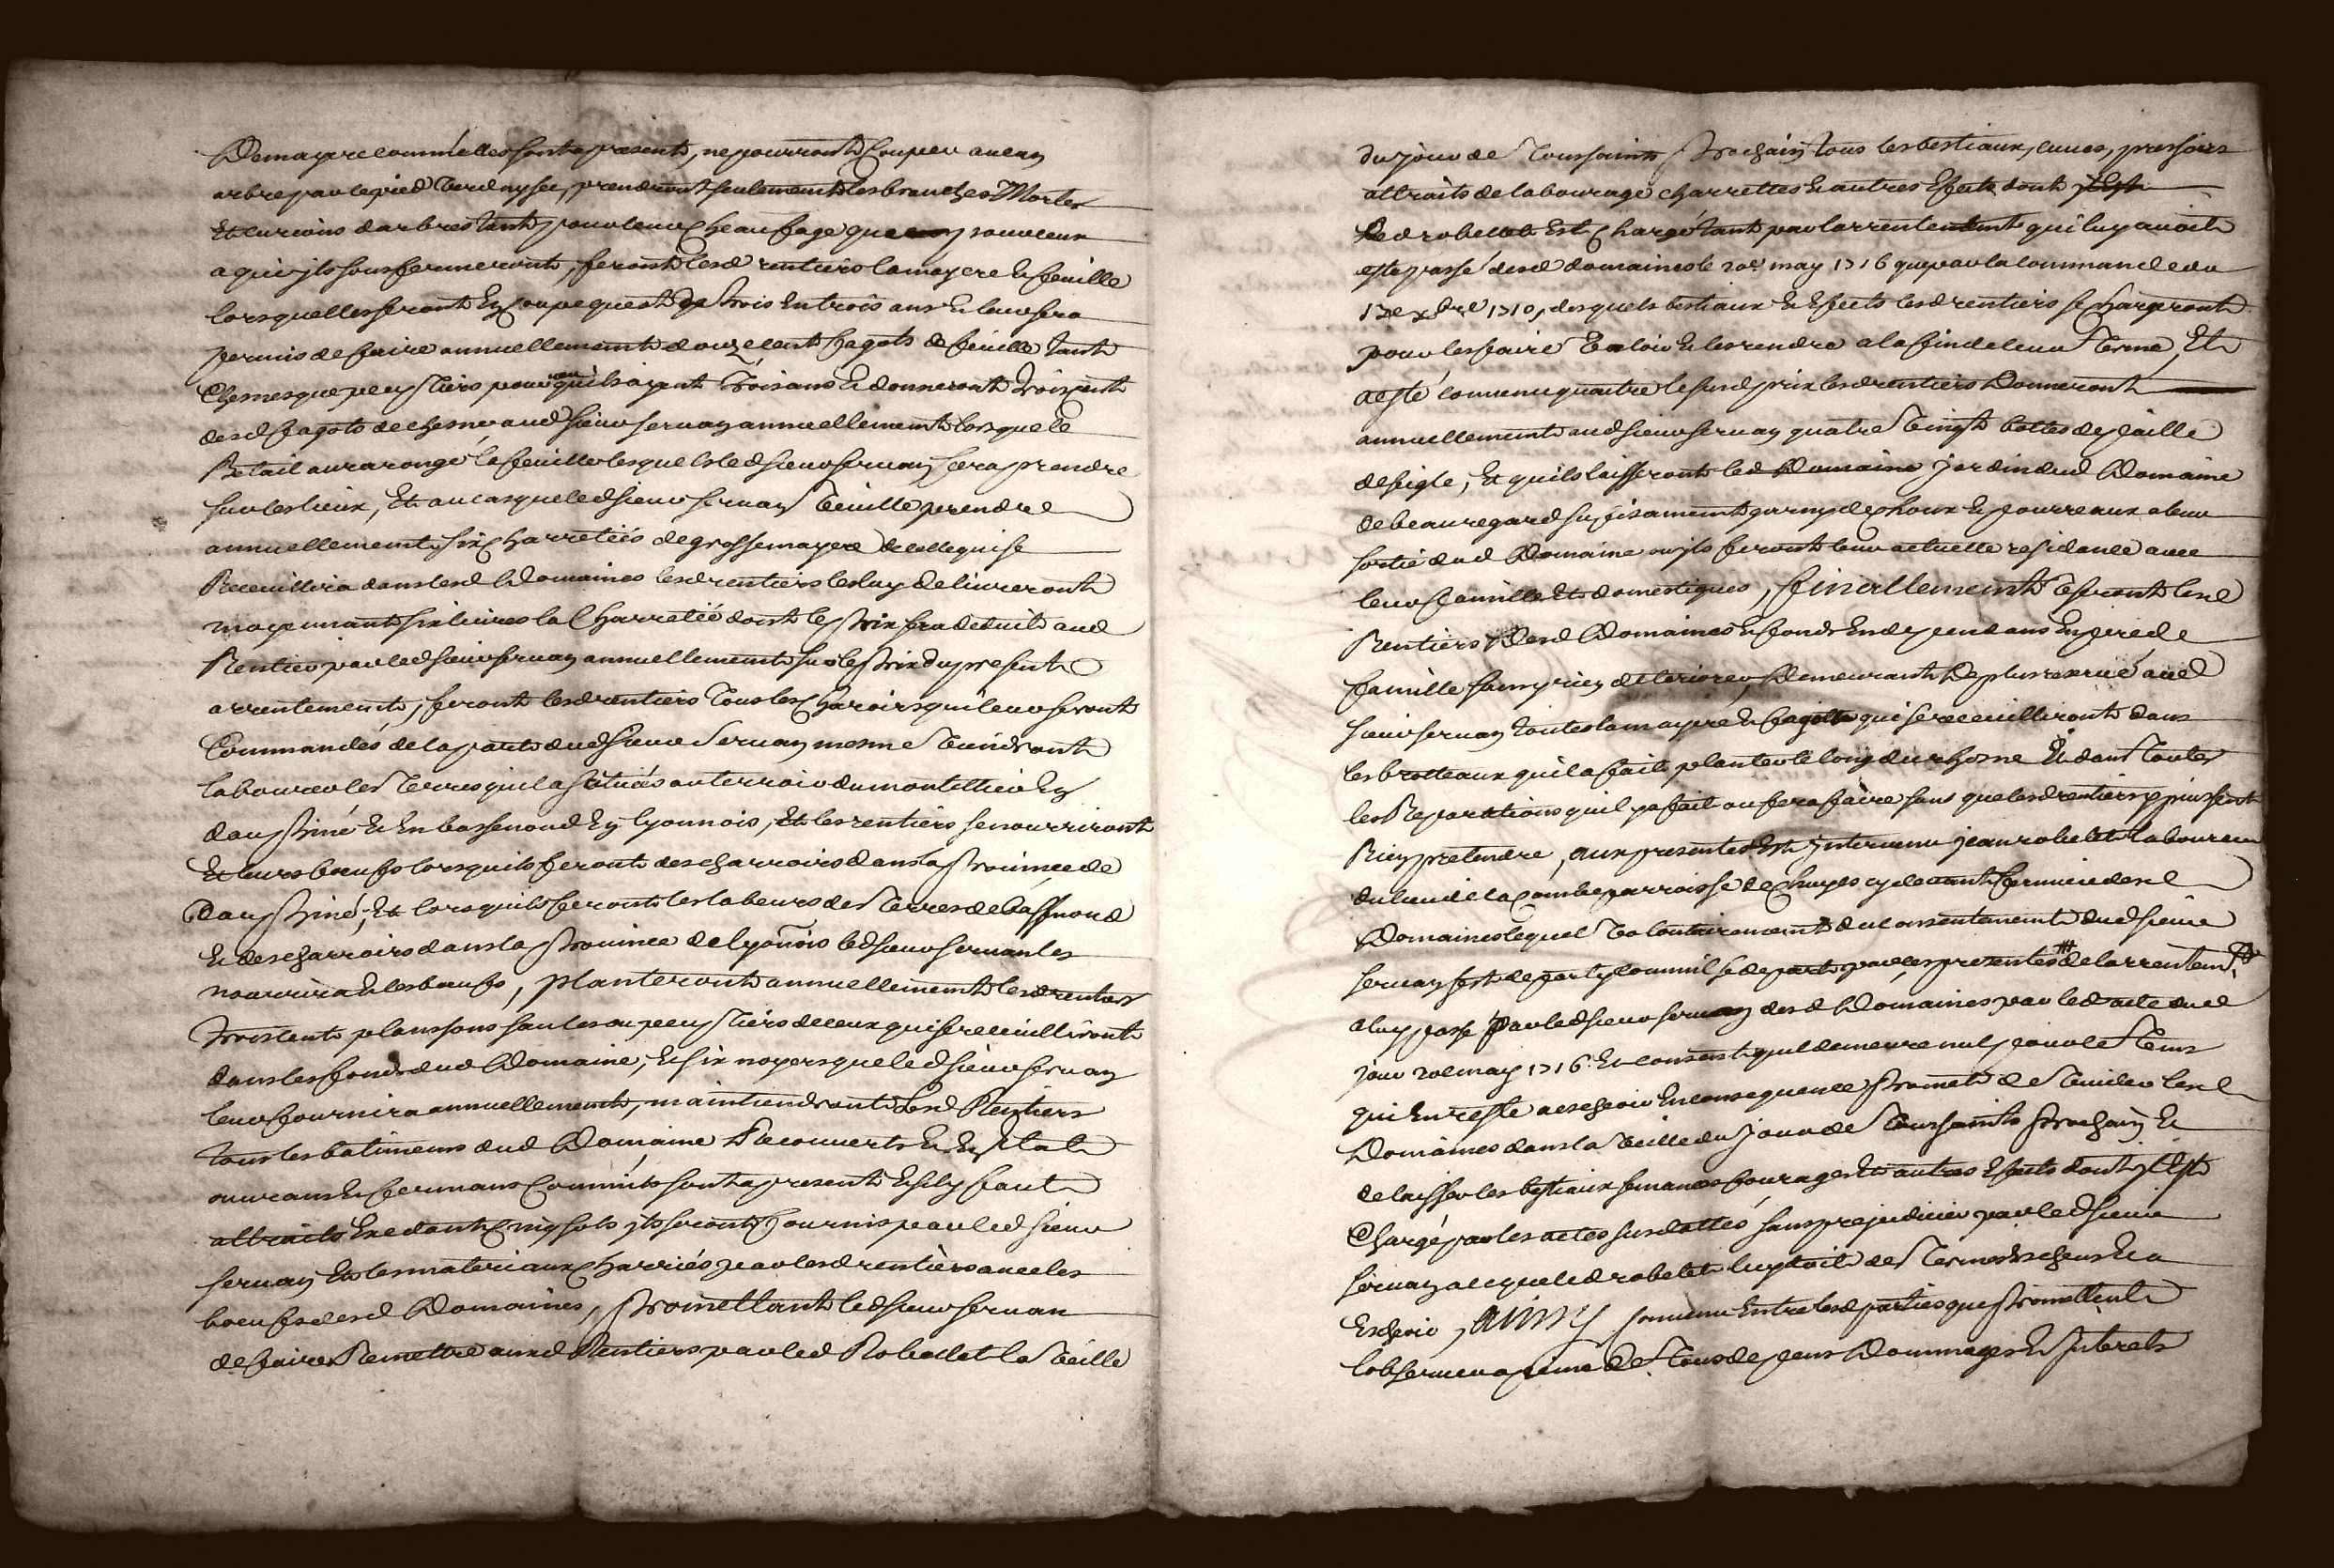 De mayere comme elles sont a present, ne pourront Couper aucun
arbre par le pied verd ny sec, prendront seulement les branches Mortes
Et curions d'arbres tant pour leur Cheauffage que pour ceux
a qui ils sousfermeront, feront lesd rentiers la mayere & feuille
lors quelles seront En Coupe quest de trois En trois ans & leur sera
permis de faire annuellement douze cent fagots de feuille tant
Chesnes que peupliers pour veu quils ayent Trois ans & donneront trois cent
desd fagots de chesne aud sieur servan annuellement lors que le
Betail aura rongé la feuille lesquels led sieur servan fera prendre
sur les lieux, Et au cas que led sieur servan veuille prendre
annuellement six Charretées de grosse mayere de celle qui se
Receuillira dans lesd Domaines lesd rentiers les luy delivreront
moyennant six livres la Charretée dont le prix sera deduit aud
Rentiers par led sieur servan annuellement sur le prix du present
arrentement, feront lesd rentiers Tous les Charoirs qui leur seront
Commandés de la part dud sieur servan mesme viendront
labourer les Terres quil a scitués au terroir du montellier En
dauphiné & En bassenoud En lyonnois, Et les rentiers se nourriront
Et leurs boeufs lors quils feront des charroirs dans la province de
Dauphiné, Et lors quils feront les labeurs des Terres de bassenoud
& des charroirs dans la province de lyonnois led sieur servan les
nourrira & les boeufs, planteront annuellement lesd rentiers
trois cent plansons saules ou peupliers de ceux qui se receuilliront
dans les fonds dud Domaine, & six noyers que led sieur servan
leur fournira annuellement, maintiendront lesd Rentiers
tous les batimens dud Domaine Recouverts & En Etat
ouvrans & fermans Comme ils sont a present & sily faut
attraits Excedants Cinq sols ils seront fournis par led sieur
servan Et les materiaux Charriés par lesd rentiers avec les
boeufs desd Domaines, promettant led sieur servan
de faire Remettre auxd Rentiers par led Robellet la veille
du jour de Toussaints prochain tous les bestiaux, cuves, pressoirs
attraits de labourage charrettes & autres Effects dont
led robellet Est Chargé tant par l'arrentement qui luy avoit
esté passé desd domaines le 20e may 1716 que par la commande du
17e xbre 1710, desquels bestiaux & Effects lesd rentiers se Chargeront
pour les faire valoir & les rendre a la fin de leur Terme, Et
a esté convenu quoutre le susd prix lesd rentiers Donneront
annuellement aud sieur servan quatre vingt bottes de paille
de sigle, Et quils laisseront led Domaine jardin dud Domaine
de beauregard suffisament garny de choux & pourreaux a leur
sortie dud Domaine ou ils feront leur actuelle residance avec
leur famille Et domestiques, finallement useront lesd
Rentiers desd Domaines & fonds En dependans En pere de
famille sans y rien deteriorer, Demeurant De plus reservé aud
sieur servan toutes la mayere & fagotts qui se receuilliront dans
les brotteaux quil a fait planter le long du rhosne & dans toutes
les Reparations quil y a fait ou fera faire sans que lesd rentiers y puissent
Rien pretendre, aux presentes Est Intervenu jean robellet laboureur
du lieu de la Combe parroisse de Chuyes cy devant fermier desd
Domaines lequel volontairement du consentement dud sieur
servan sest departy comme il se depart par ces presentes de larrentemt
a luy passé Par led sieur servan desd Domaines par led acte dud
jour 20e may 1716 Et consent quil demeure nul pour le Tems
qui En reste a escheoir En consequence promet de vuider lesd
Domaines dans la veille du jour de Toussaints prochain &
de laisser les bestiaux semances fourages Et autres Effects dont il Est
Chargé par les actes susdattés sans prejudicier par led sieur
servan a ce que led robellet luy doit des Termes Escheus & a
Escheoir, AINSY convenu Entre lesd parties que promettent
l'observer a peine de Tous depens Dommages & Interets